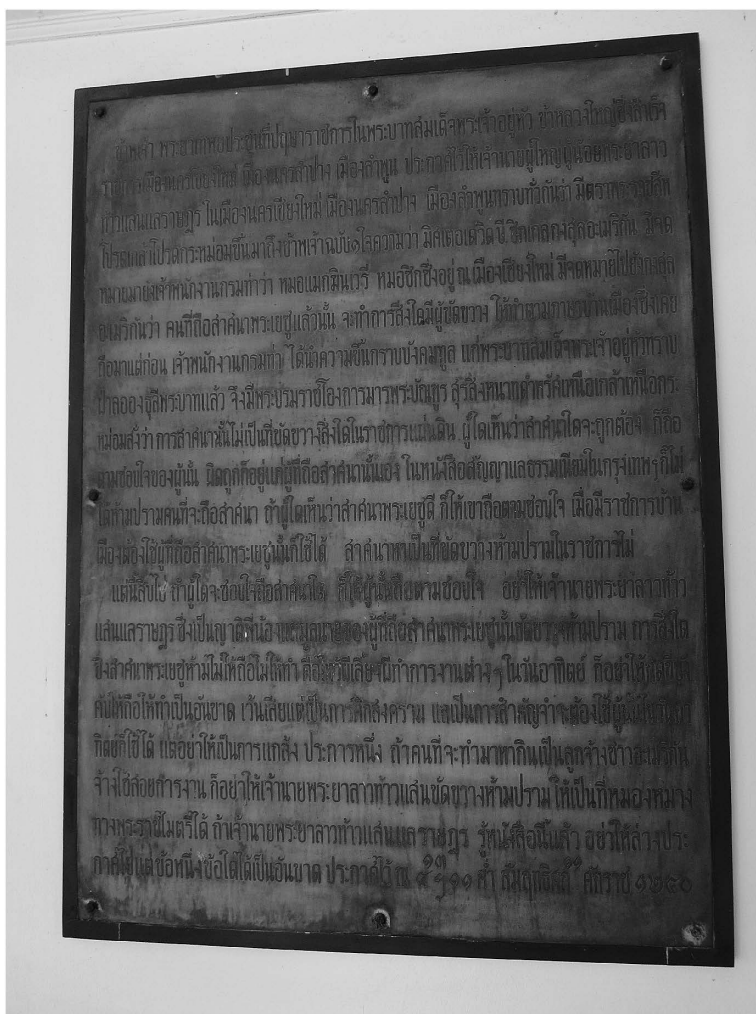 ข้าพเจ้า พระยาเทพประชุนที่ปฤษาราชการในพระบาทสมเด็จพระเจ้าอยู่หัว ข้าหลวงใหญ่ซึ่งสำเร็จ
ราชการเมืองนครเชียงใหม่ เมืองนครลำปาง เมืองลำพูน ประกาศไว้ให้เจ้านายผู้ใหญ่ผู้น้อยพระยาลาว
ท้าวแสนแลราษฎร ในเมืองนครเชียงใหม่ เมืองนครลำปาง เมืองลำพูนทราบทั่วกันว่า มีตราพระราชสีห
โปรดเกล้าโปรดกระหม่อมขึ้นมาถึงข้าพเจ้าฉบับ๑ใจความว่า มิศเตอเดวิด บี. ซิกเกลกงสุลอะเมริกัน มีจด
หมายมายังเจ้าพนักงานกรมท่าว่า หมอแมกฟินเวรี หมอชิกซึ่งอยู่ ณ เมืองเชียงใหม่ มีจดหมายไปยังกงสุล
อะเมริกันว่า คนที่ถือสาศนาพระเยซูแล้วนั้น จะทำการสิ่งใดมีผู้ขัดขวาง ให้ทำตามภาษาบ้านเมืองซึ่งเคย
ถือมาแต่ก่อน เจ้าพนักงานกรมท่า ได้นำความขึ้นกราบบังคมทูล แก่พระบาทสมเด็จพระเจ้าอยู่หัวทราบ
ฝ่าลอองธุลีพระบาทแล้ว จึงมีพระบรมราชโองการมารพระบัณฑูร สุรสิงหนาทดำหรัศเหนือเกล้าเหนือกระ
หม่อมสั่งว่า การสาศนานั้นไม่เป็นที่ขัดขวางสิ่งใดในราชการแผ่นดิน ผู้ใดเห็นว่าสาศนาใดจะถูกต้อง ก็ถือ
ตามชอบใจของผู้นั้น ผิดถูกก็อยู่แก่ผู้ที่ถือสาศนานั้นเอง ในหนังสือสัญญาแลธรรมเนียมในกรุงเทพฯ ก็ไม่
ได้ห้ามปรามคนที่จะถือสาศนา ถ้าผู้ใดเห็นว่าสาศนาพระเยซูดี ก็ให้เขาถือตามชอบใจ เมื่อมีราชการบ้าน
เมืองต้องใช้ผู้ที่ถือสาศนาพระเยซูนั้นก็ใช้ได้ สาศนาหาเป็นที่ขัดขวางห้ามปรามในราชการไม่
แต่นี้สืบไป ถ้าผู้ใดจะชอบใจถือสาศนาใด ก็ให้ผู้นั้นถือตามชอบใจ อย่าให้เจ้านายพระยาลาวท้าว
แสนแลราษฎร ซึ่งเป็นญาติพี่น้องแลมูลนายของผู้ที่ถือสาศนาพระเยซูนั้นขัดขวางห้ามปราม การสิ่งใด
ซึ่งสาศนาพระเยซูห้ามไม่ให้ถือไม่ให้ทำ คือไหว้ผีเลี้ยงผีทำการงานต่างๆ ในวันอาทิตย์ ก็อย่าให้
คับให้ถือให้ทำเป็นอันขาด เว้นเสียแต่เป็นการศึกสงคราม แลเป็นการสำคัญจำจะต้องใช้ผู้นั้นในวันอา
ทิตย์ก็ใช้ได้ แต่อย่าให้เป็นการแกล้ง ประการหนึ่ง ถ้าคนที่จะทำมาหากินเป็นลูกจ้างชาวอะเมริกัน
จ้างใช้สอยการงาน ก็อย่าให้เจ้านายพระยาลาวท้าวแสนขัดขวางห้ามปราม ให้เป็นที่หมองหมาง
ทางพระราชไมตรีได้ ถ้าเจ้านายพระยาลาวท้าวแสนแลราษฎร รู้หนังสือนี้แล้ว อย่าให้ล่วงประ
กาศนี้ไปแต่ข้อหนึ่งข้อใดได้เป็นอันขาด ประกาศไว้ ณ ค่ำ สัมฤทธิศก ศักราช ๑๒๔๐